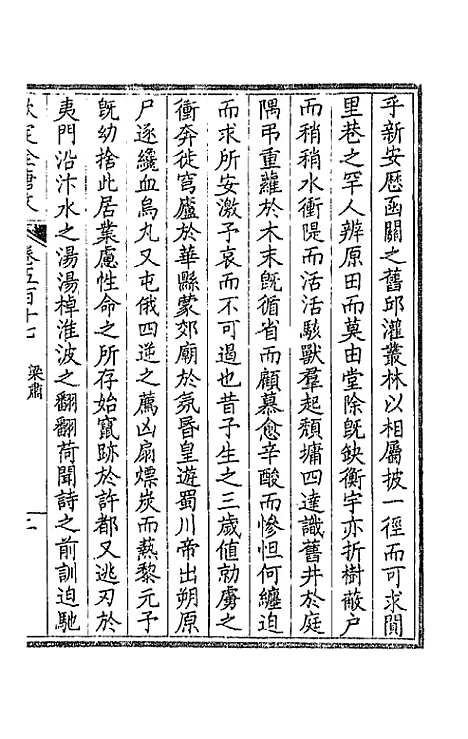 乎新安歷函關之舊邱灌叢林以相屬披一徑而可求閴
里巷之罕人辨原田而莫由堂除旣缺衡宇亦折樹蔽戶
而稍稍水衝隄而活活駭獸羣起頹墉四達識舊井於庭
隅弔重蘿於木末旣循省而顧慕愈辛酸而慘怛何纏迫
而求所安激予哀而不可遏也昔予生之三歲値勍虜之
衝奔徙穹廬於華縣蒙郊廟於氛昏皇遊蜀川帝出朔原
尸逐纔血烏丸又屯俄四逆之薦凶扇熛炭而爇黎元予
旣幼捨此居業慮性命之所存始竄跡於許都又逃刃於
夷門沿汴水之湯湯棹淮波之翻翻荷聞詩之前訓迫馳
欽定全唐文
卷五百十七
梁肅
二